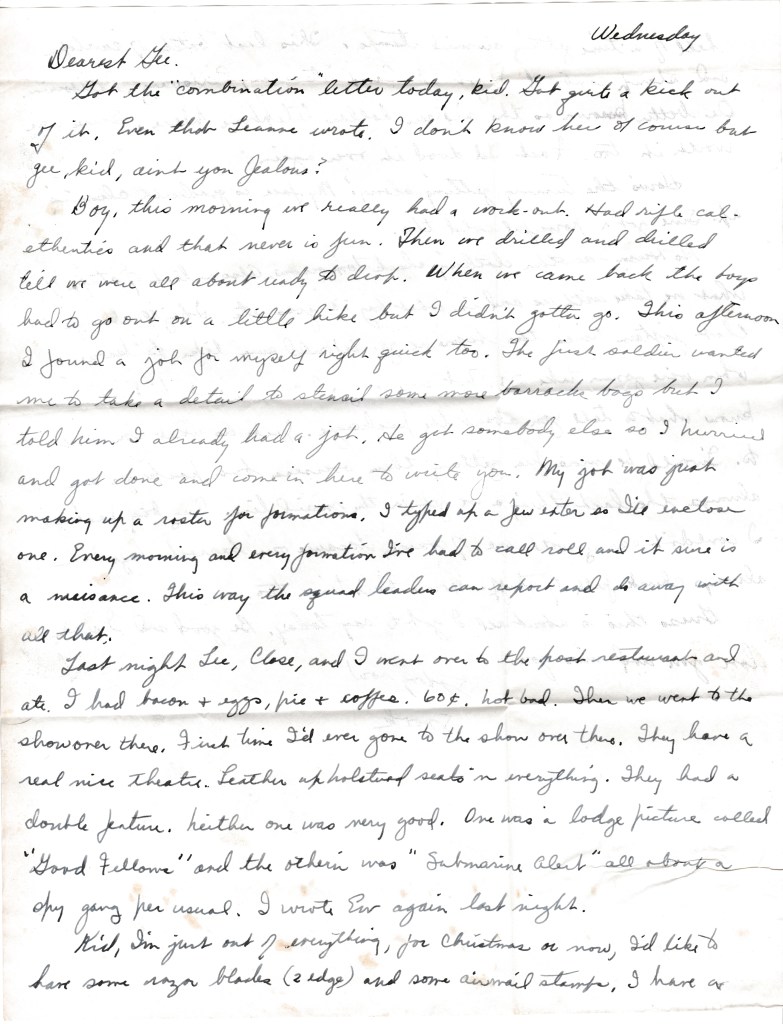 Wednesday
Dearest Gee.
Got the "combination" letter today, kid. Got quite a kick out
of it. Even that Leanne wrote. I don't know her of course but
gee, kid, aint you Jealous?
Boy, this morning we really had a work-out. Had rifle cal-
esthentics and that never is fun. Then we drilled and drilled
till we were all about ready to drop. When we came back the boys
had to go out on a little hike but I didn't gotta go. This afternoon
I found a job for myself right quick too. The first soldier wanted
me to take a detail to stensil some more barracks bags but I
told him I already had a job. He got somebody else so I hurried
and got done and come in here to write you. My job was just
making up a roster for formations. I typed up a few exter so I'll enclose
one. Every morning and every formation I've had to call roll and it sure is
a nuisance. This way the squad leaders can report and do away with
all that.
Last night Lee, Close, and I went over to the post restaurant and
ate. I had bacon + eggs, pie + coffee. 60¢. not bad. Then we went to the
show over there. First time I'd ever gone to the show over there. They have a
real nice theatre. Leather upholstured seats 'n everything. They had a
double feature. Neither one was very good. One was a lodge picture called
"Good Fellows" and the other'n was "Submarine Alert" all about a
spy gang per usual. I wrote Ev again last night.
Kid, I'm just out of everything, for Christmas or now, I'd like to
have some razor blades (2 edge) and some airmail stamps. I have a